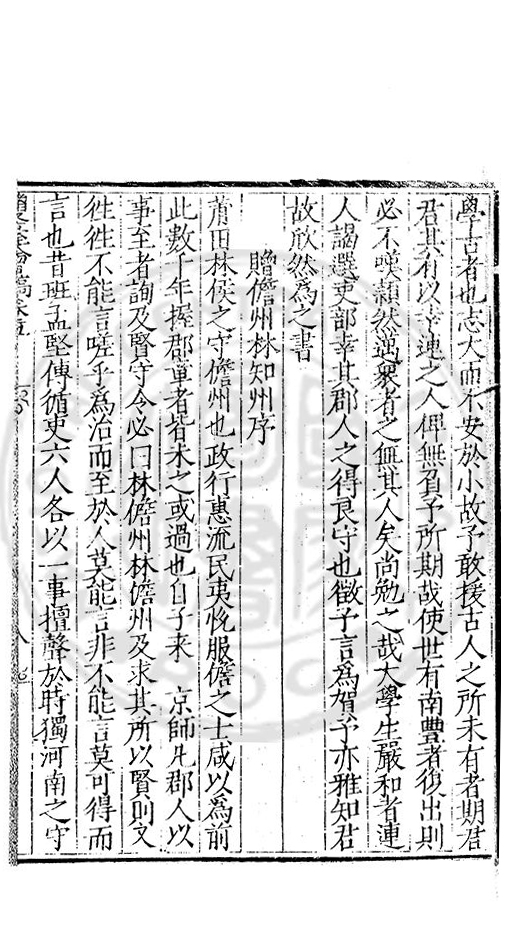 學古者也志大而不安於小故予敢援古人之所未有者期君
君其有以幸連之人俾無負予所期哉使世有南豐者復出則
必不嘆顙然邁衆者之無其人矣尚勉之哉大學生嚴和者連
人謁選吏部幸其郡人之得良守也徵予言爲賀予亦雅知君
故欣然爲之書
贈儋州林知州序
莆田林侯之守儋州也政行惠流民夷悅服儋之士咸以爲前
此數千年握郡章者皆未之或過也自予來 京師凡郡人以
事至者詢及賢守令必曰林儋州林儋州及求其所以賢則又
徃徃不能言嗟乎爲治而至於人莫能言非不能言莫可得而
言也昔班孟堅傳循吏六人各以一事擅聲於時獨河南之守
瓊臺會稿卷五
八